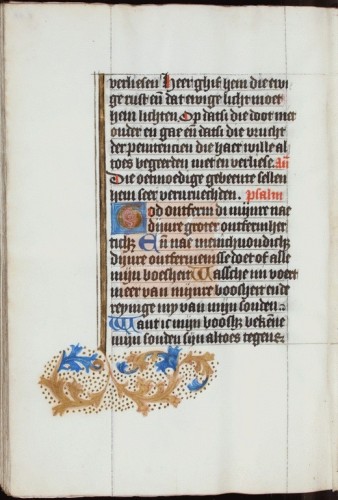 verliesen Heer ghif hem die ewi
ge rust en̄ dat ewige licht moet
hem lichten Op datsi die door mer
ouder en gae en̄ datsi die vrucht
der penitencien die haer wille al
toes begeerden niet en verliese. an̄
Die oemoedige gebeente sellen
hem seer vervruechden. psalm
God ontferm di mijnre nae
dijnre groter ontfermher
ticħ En̄ nae menichvoudicħ
dijnre ontfermenisse doet of alle
mijn boesheit Wassche mi voert
meer van mijnre boosheit ende
reynige my van mijn sonden
Want ic mijn boosħ bekēne
mijn sonden sijn altoes tegens